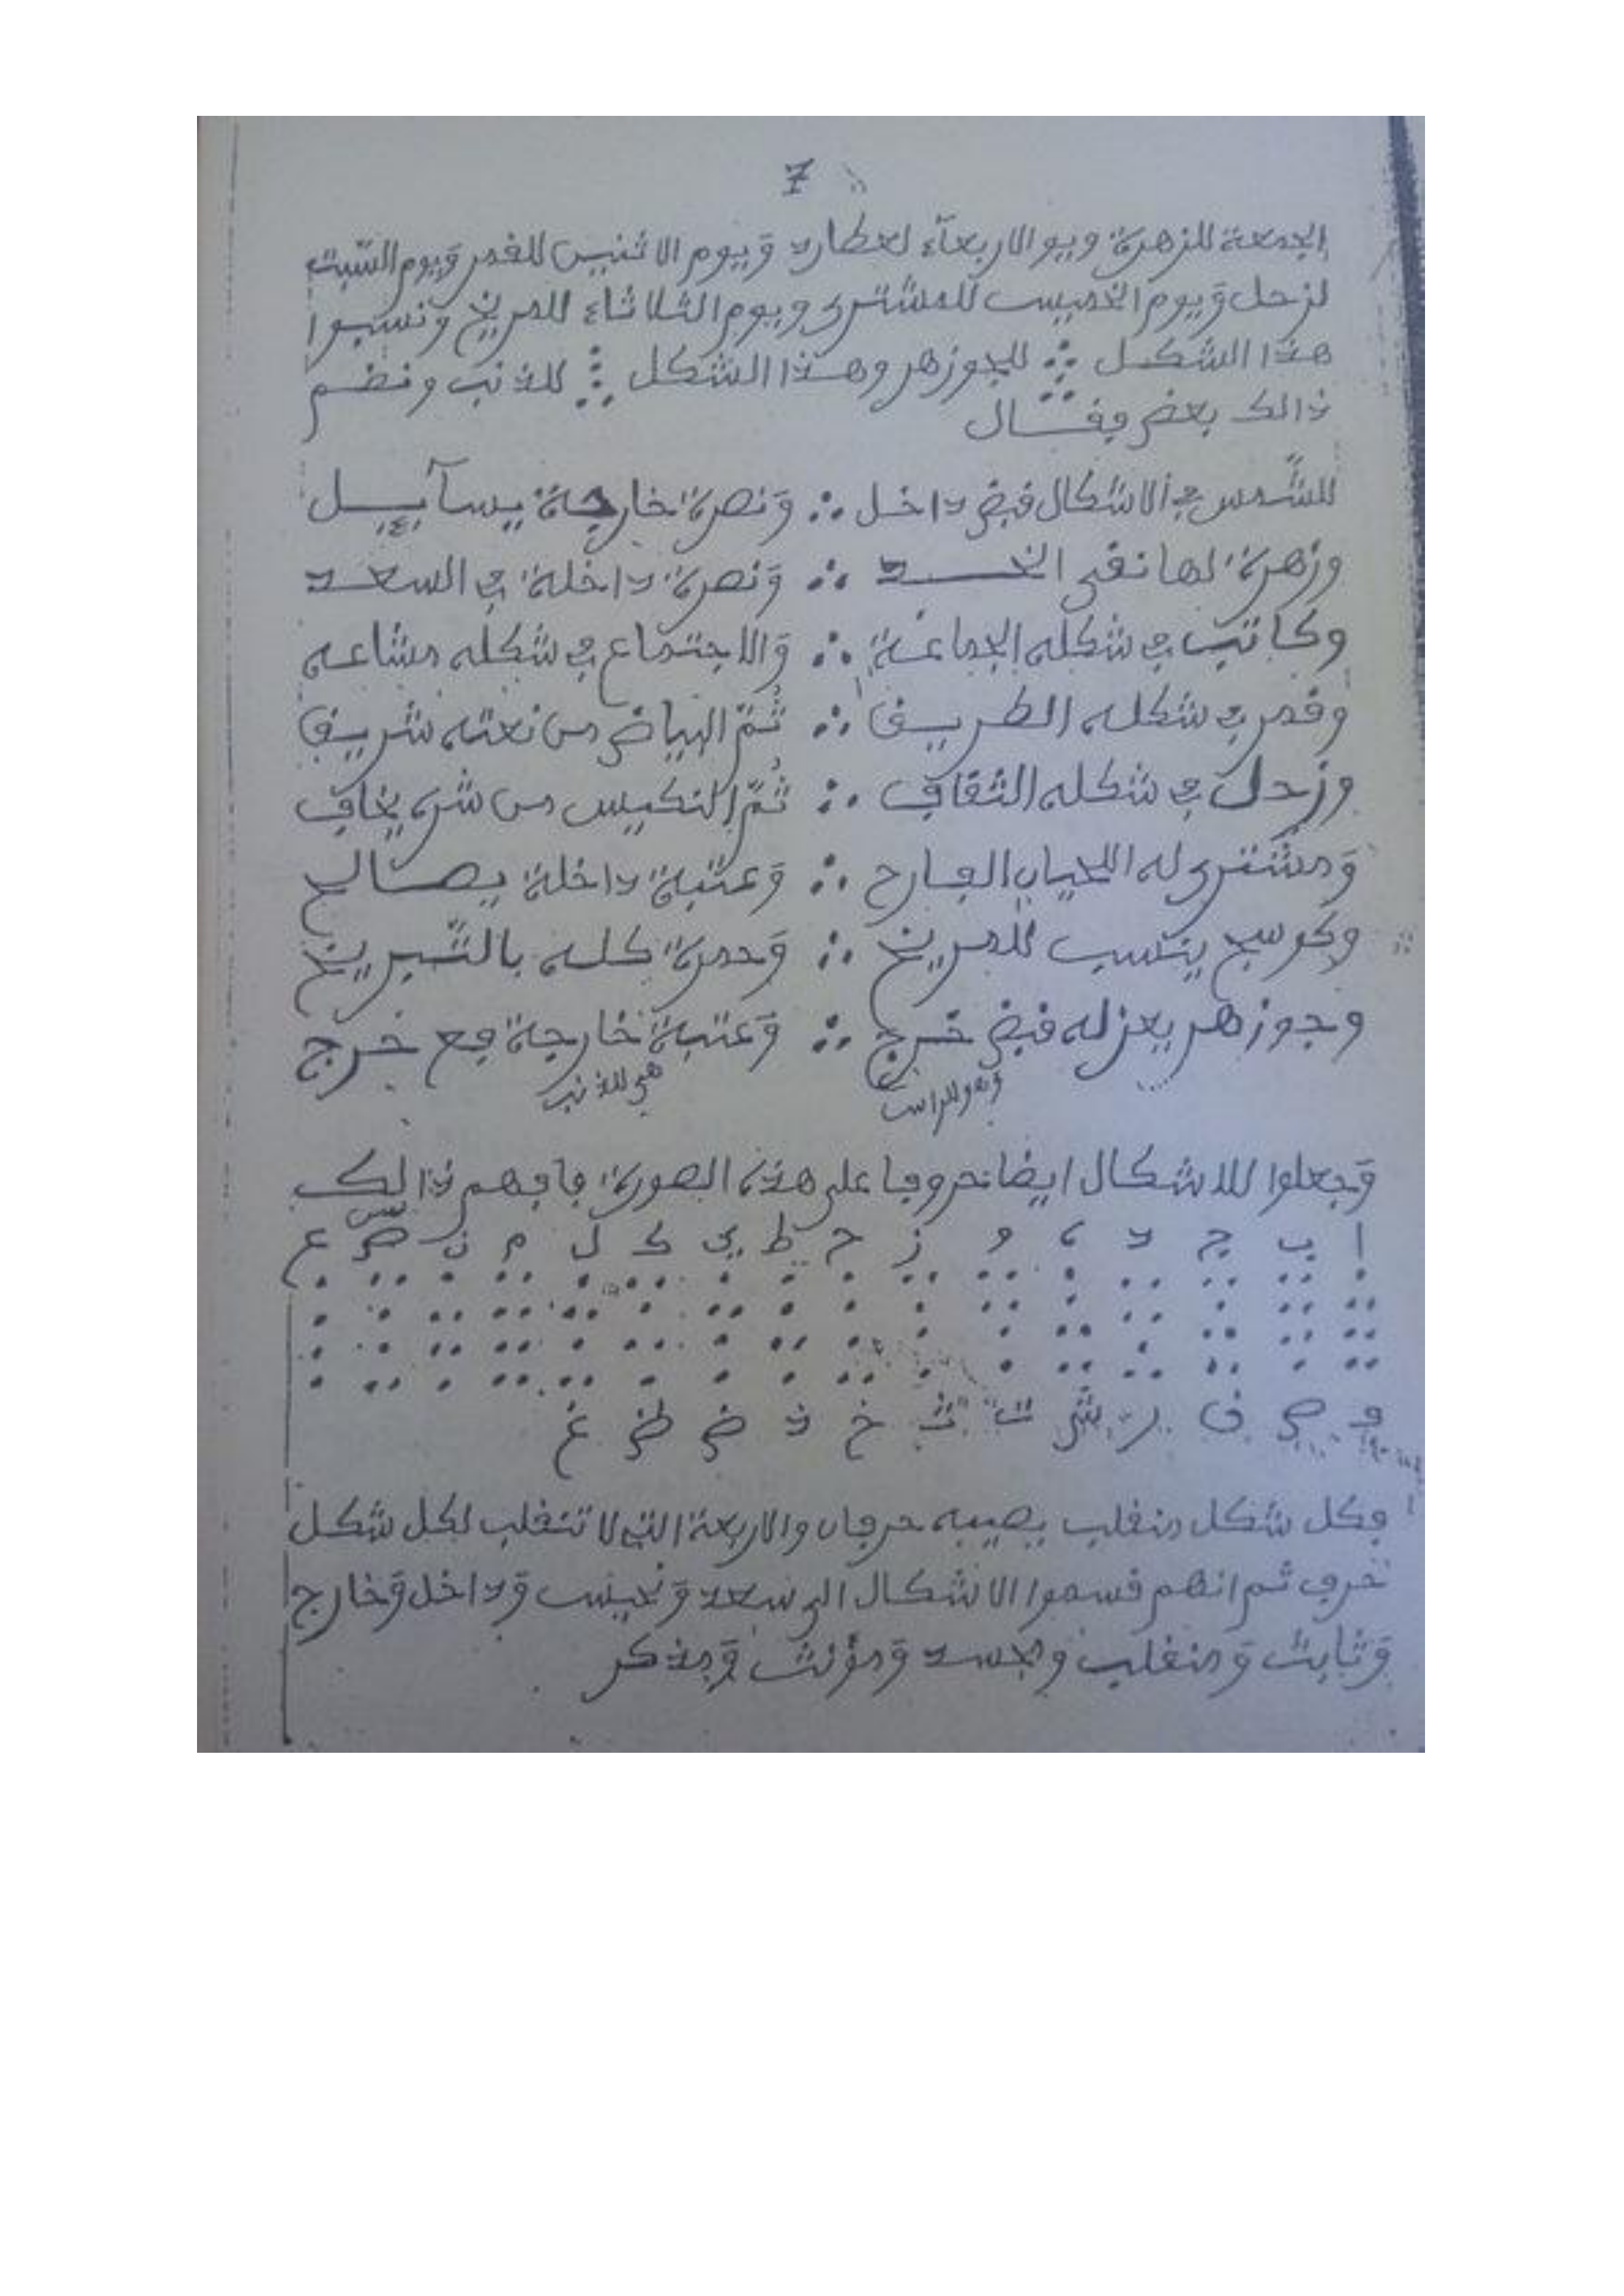 7
الجمعة للزهرة ويو الاربعآء لعطارد وَيوم الاثنين للقمر وَيوم السّبت
لزحل وَيوم الخميس للمشترى ويوم الثلاثاء للمريخ ونسبوا
هذا الشكل للجوزهر وهذا الشكل للذنب ونضم
ذالك بعض فقال
للشَّمس في الاشكال قبض داخل ∴ وَنصرة خارجة يسآييل
وزهرة لها نقى الخـــد ∴ وَنصرة داخلة في السعد
وكاتب في شكله الجماعة ∴ وَالاجتماع في شكله مشاعه
وقمر في شكله الطريق ∴ ثُمّ البياض من نعته شريف
وزحل في شكله الثقاف ∴ ثُمّ النكيس من شره يخاف
وَمشترى له اللحيان الفارح ∴ وَعتبة داخلة يصالح
وكوسج ينتسب للمريخ ∴ وَحمرة كله بالتّبريخ
وجوزهر يعزله قبض خرج ∴ وَعتبة خارجة مع خرج
وهو للراس هي للذنب
وَجعلوا للاشكال ايضا حروفا على هذه الصورة فافهم ذالك
ا ب ج د ه و ز ح ط ي ك ل م ن ص س ع
ف ض ق ر ش ت ث خ ذ ض ظ غ
فكل شكل منقلب يصيبه حرفان والاربعة التي لا تنقلب لكل شكل
حرف ثم انهم قسموا الاشكال الى سعد وَنحيس وَداخل وَخارج
وَثابت وَمنقلب وجسد وَمؤنث وَمذكر